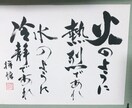 火のように
熱烈であれ
水のように
冷静であれ